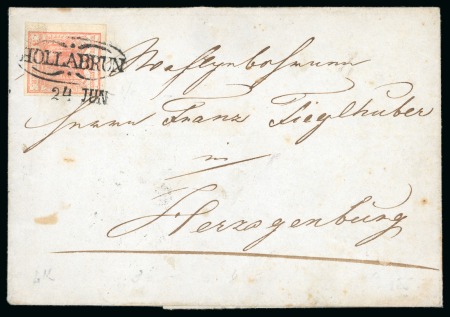 HOLLABRUN
24 JUN
Wohlgebohrnen
Herrn Franz Fieglhuber
in
Herzogenburg